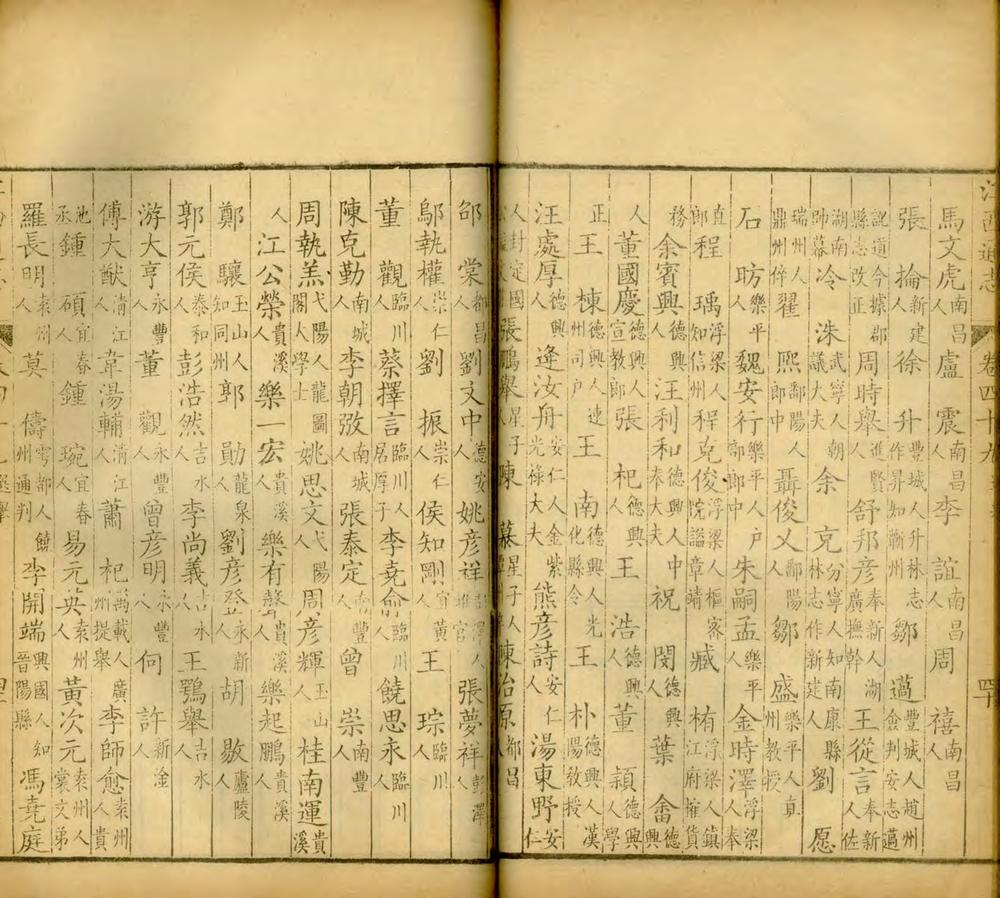 江西通志 卷四十九
馬文虎南昌人 盧 震南昌人 李 誼南昌人 周 禧南昌人
張 掄新建人 徐 升豐城人升林志作昇知蘄州 鄒 邁豐城人趙州僉判安志邁
記道今據郡縣志改正 周時舉進賢人 舒邦彥奉新人湖廣撫幹 王從言奉新人佐
湖南帥幕 冷 洙武寧人朝議大夫 余 克分寧人知南康縣林志作新建人 劉 愿
瑞州人鼎州倅 翟 熙鄱陽人郎中 聶俊乂鄱陽人 鄒 盛樂平人真州教授
石 昉樂平人 魏安行樂平人戶部郎中 朱嗣孟樂平人 金時澤浮梁人奉
直郎 程 瑀浮梁人知信州 程克俊浮梁人樞密院諡章靖 臧 楠浮梁人鎮江府搉貨
務 余賓興德興人 汪利和德興人中奉大夫 祝 閔德興人 葉 畬德興
人 董國慶德興人宣教郎 張 杞德興人 王 浩德興人 董 熲德興人學
正 王 棟德興人連州司戶 王 南德興人光化縣令 王 朴德興人漢陽教授
汪處厚德興人 逄汝舟安仁人金紫光祿大夫 熊彥詩安仁人 湯東野安仁
人封 定國 張鵬舉星子人 陳 慕星子人 陳治原都昌人
邰 棠都昌人 劉文中德安人 姚彥祥彭澤人推官 張夢祥彭澤人
鄔執權崇仁人 劉 振崇仁人 侯知剛宜黃人 王 琮臨川人
董 觀臨川人 蔡擇言臨川人居厚子 李堯俞臨川人 饒思永臨川人
陳克勤南城人 李朝弢南城人 張泰定南豐人 曾 崇南豐人
周執羔弋陽人龍圖閣大學士 姚思文弋陽人 周彥輝玉山人 桂南運貴溪
人 江公榮貴溪人 樂一宏貴溪人 樂有聲貴溪人 樂起鵬貴溪人
鄭 驤玉山人知同州 郭 勛龍泉人 劉彥登永新人 胡 敭廬陵人
郭元侯泰和人 彭浩然吉水人 李尚義吉水人 王鶚舉吉水人
游大亨永豐人 董 觀永豐人 曾彥明永豐人 何 許新淦人
傅大猷清江人 韋湯輔清江人 蕭 杞萬載人廣州提舉 李師愈袁州人貴
池丞 鍾 碩宜春人 鍾 琬宜春人 易元英袁州人 黃次元袁州人棠文弟
羅長明袁州人 莫 儔雩都人饒州通判 李開端興國人知晉陽縣 馮堯庭